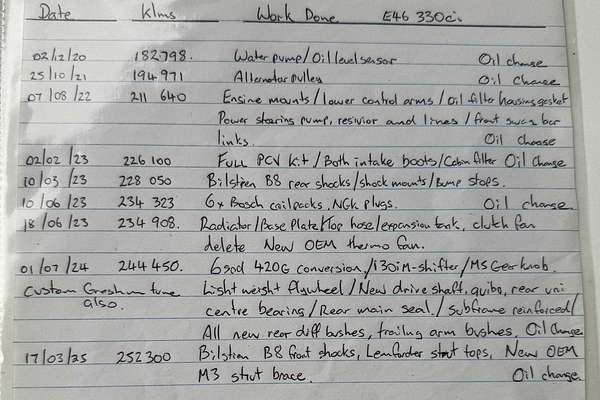 Date Klms Work Done E46 330ci
02/12/20 182798. Water pump/Oil level sensor Oil change
25/10/21 194971 Alternator pulley Oil Change
07/08/22 211 640 Engine mounts/lower control arms/Oil filter housing gasket
Power stearing pump, resivior and lines/front sway bar
links. Oil change
02/02/23 226 100 Full PCV Kit/Both intake boots/Cabin filter Oil Change
10/03/23 228 050 Bilstien B8 rear shocks/shock mounts/Bump stops.
10/06/23 234 323 6x Bosch coilpacks. NGK plugs. Oil change
18/06/23 234 908. Radiator/Base Plate/Top hose/expansion tank, clutch fan
delete New OEM thermo fan.
01/07/24 244 450. 6spd 420G conversion/i30iM-shifter/M5 Gear knob.
Custom tune Light weight flywheel/New drive shaft, guibo, rear uni
also. centre bearing/Rear main seal/subframe reinforced/
All new rear diff bushes, trailing arm bushes. Oil Change
17/03/25 252300 Bilstien B8 front shocks, Lemforder strut tops, New OEM
M3 strut brace. Oil change